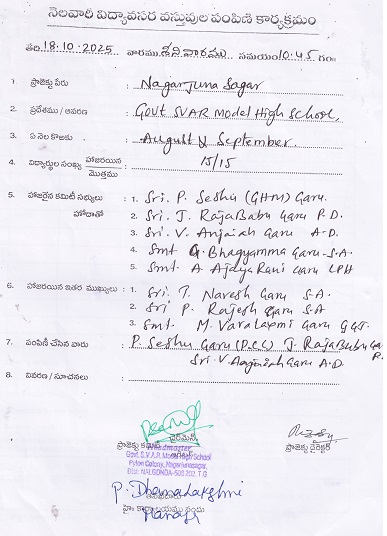 నెలవారి విద్యావసర వస్తువుల పంపిణి కార్యక్రమం
తేది: 18.10.2025 వారము శనివారము సమయం 10.45 గం॥
1. ప్రాజెక్టు పేరు : Nagarjuna Sagar
2. ప్రదేశము / ఆవరణ : Govt SVAR Model High School,
3. ఏ నెల కొరకు : August & September.
4. విద్యార్థుల సంఖ్య హాజరయిన / మొత్తము : 15/15
5. హాజరైన కమిటీ సభ్యులు : 1. Sri. P. Seshu (GHM) Garu.
హోదాతో 2. Sri. J. RajaBabu Garu P.D.
3. Sri. V. Anjaiah Garu A.D.
4. Smt G. Bhagyamma Garu S.A.
5. Smt A. Ajaya Rani Garu LPH
6. హాజరయిన ఇతర ముఖ్యులు : 1. Sri. T. Naresh Garu S.A.
2. Sri P. Rajesh Garu S.A
3. Smt. M. Varalaxmi Garu
7. పంపిణీ చేసిన వారు : P. Seshu Garu (D.C.C) J. RajaBabu Garu P.
Sri. V. Anjaiah Garu A.D.
8. వివరణ / సూచనలు :
ప్రాజెక్టు కమిటీ చైర్మన్
ప్రాజెక్టు డైరెక్టర్
Headmaster
Govt. S.V.A.R. Model High School
Pylon Colony, Nagarjunasagar,
Dist: NALGONDA-508 202. T.G
P. Dhanadakshmi
Manager